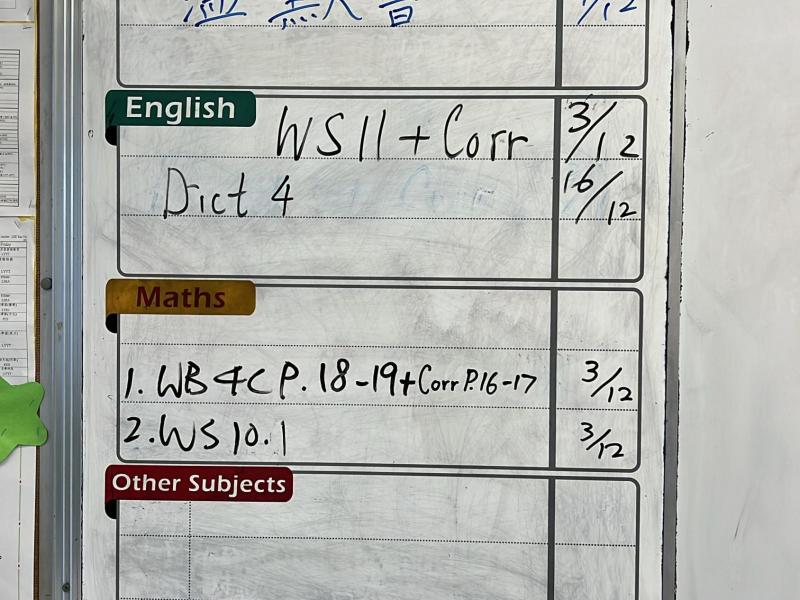 默書
English
WS 11 + Corr 3/12
Dict 4 16/12
Maths
1. WB 4C P. 18-19 + Corr P.16-17 3/12
2. WS 10.1 3/12
Other Subjects